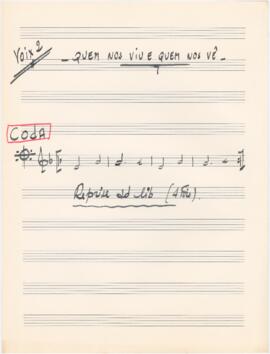 Voix 2
- QUEM NOS VIU E QUEM NOS VÊ -
CODA
Reprise ad lib. (4 fois).